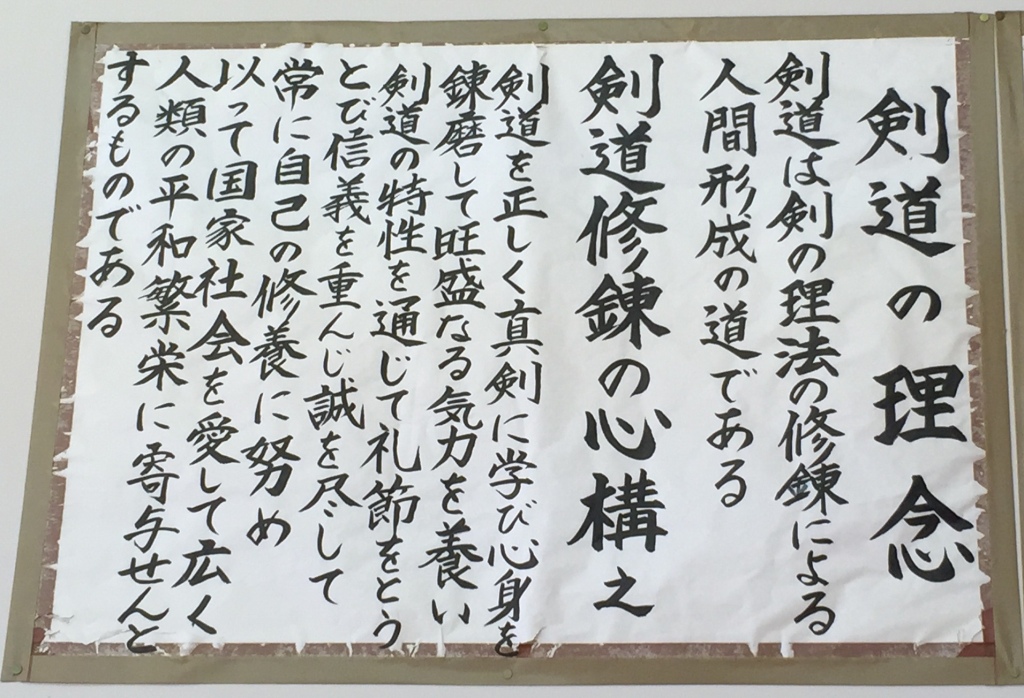 剣道の理念
剣道は剣の理法の修錬による
人間形成の道である
剣道修錬の心構え
剣道を正しく真剣に学び心身を
錬磨して旺盛なる気力を養い
剣道の特性を通じて礼節をとう
とび信義を重んじ誠を尽して
常に自己の修養に努め
以って国家社会を愛して広く
人類の平和繁栄に寄与せんと
するものである